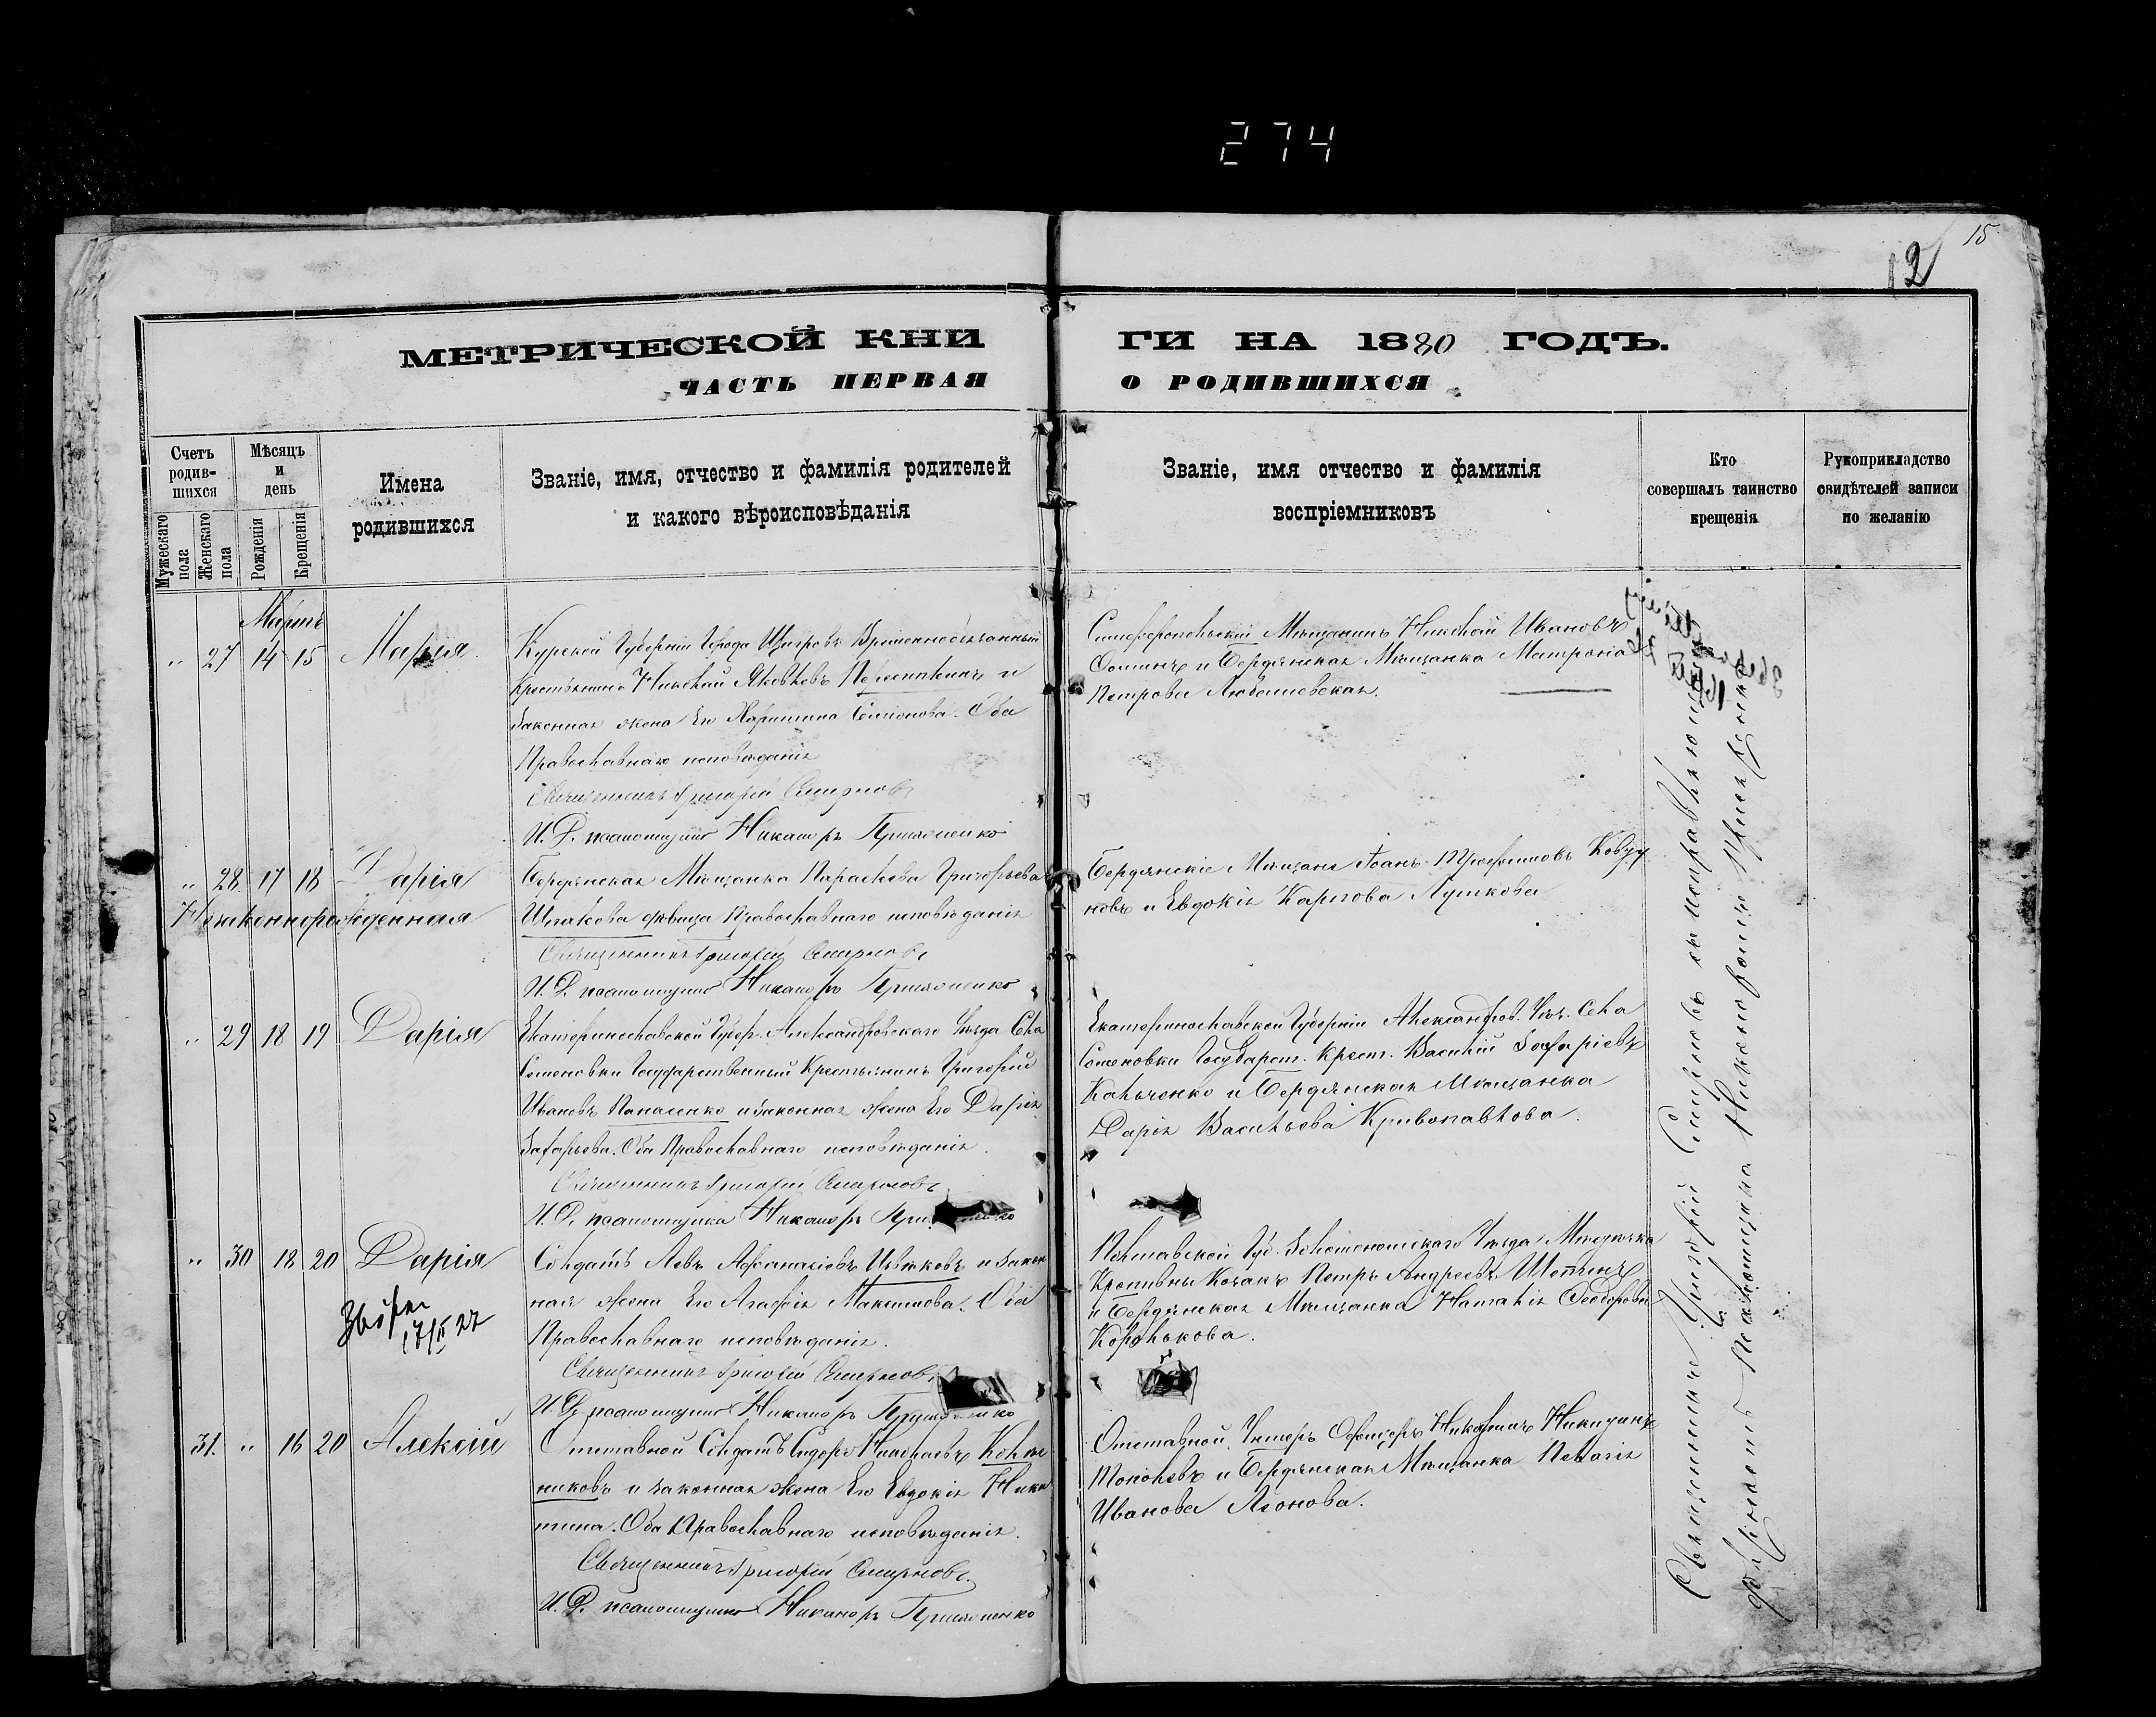 274
15
12
МЕТРИЧЕСКОЙ КНИ
ГИ НА 1880 ГОДЪ.
ЧАСТЬ ПЕРВАЯ
О РОДИВШИХСЯ
Счетъ родив-шихся
Мѣсяцъ и день
Имена родившихся
Званіе, имя, отчество и фамилія родителей
и какого вѣроисповѣданія
Званіе, имя отчество и фамилія
воспріемниковъ
Кто
совершалъ таинство
крещенія
Рукоприкладство
свидѣтелей записи
по желанію
Мужескаго пола
Женскаго пола
Рожденія
Крещенія
Мартъ
" 27 14 15 Марія
Курской Губерніи Города Щигровъ Временнообязанный
Крестьянинъ Николай Яковлевъ и
законная жена Его Харитина Семіонова. Оба
Православнаго исповѣданія
Священникъ Григорій Смирновъ
И. Д. псаломщика Никаноръ
Симферопольскій Мѣщанинъ Николай Ивановъ
Фоминъ и Бердянская Мѣщанка Матрона
Петрова Любашевская.
" 28. 17 18 Дарія
Незаконнорожденная
Бердянская Мѣщанка Параскева Григорьева
Шпакова дѣвица Православнаго исповѣданія
Священникъ Григорій Смирновъ
И. Д. псаломщика Никаноръ
Бердянскіе Мѣщане Іоанъ Трофимовъ Ковзу
новъ и Евдокія Карпова Лушкова
" 29 18 19 Дарія
Екатеринославской Губер. Александровскаго Уѣзда Села
Семеновки Государственный Крестьянинъ Григорій
Ивановъ Панасенко и законная жена Его Дарія
Захарьева. Оба Православнаго исповѣданія.
Священникъ Григорій Смирновъ
И. Д. псаломщика Никаноръ
Екатеринославской Губерніи Александров. Уѣз. Села
Семеновки Государст. Крест. Василій Захаріевъ
Кальченко и Бердянская Мѣщанка
Дарія Васильева Кривопавлова.
" 30 18 20 Дарія
17/II 27
Солдатъ Левъ Афанасіевъ Цвѣтковъ и закон
ная жена Его Агафія Максимова. Оба
Православнаго исповѣданія.
Священникъ Григорій Смирновъ
И. Д. псаломщика Никаноръ
Полтавской Губ. Золотоношскаго Уѣзда Мѣстечка
Кропивны Козакъ Петръ Андреевъ
и Бердянская Мѣщанка Наталія Феодорова
Королькова.
31. " 16 20 Алексій
Отставной Солдатъ Сидоръ Николаевъ
никовъ и законная жена Его Евдокія Ники
тина. Оба Православнаго исповѣданія.
Священникъ Григорій Смирновъ.
И. Д. псаломщика Никаноръ
Отставной Унтеръ Офицеръ
и Бердянская Мѣщанка Пелагія
Иванова Леонова.
Священникъ Григорій Смирновъ съ исправляющимъ
должность псаломщика Никаноромъ